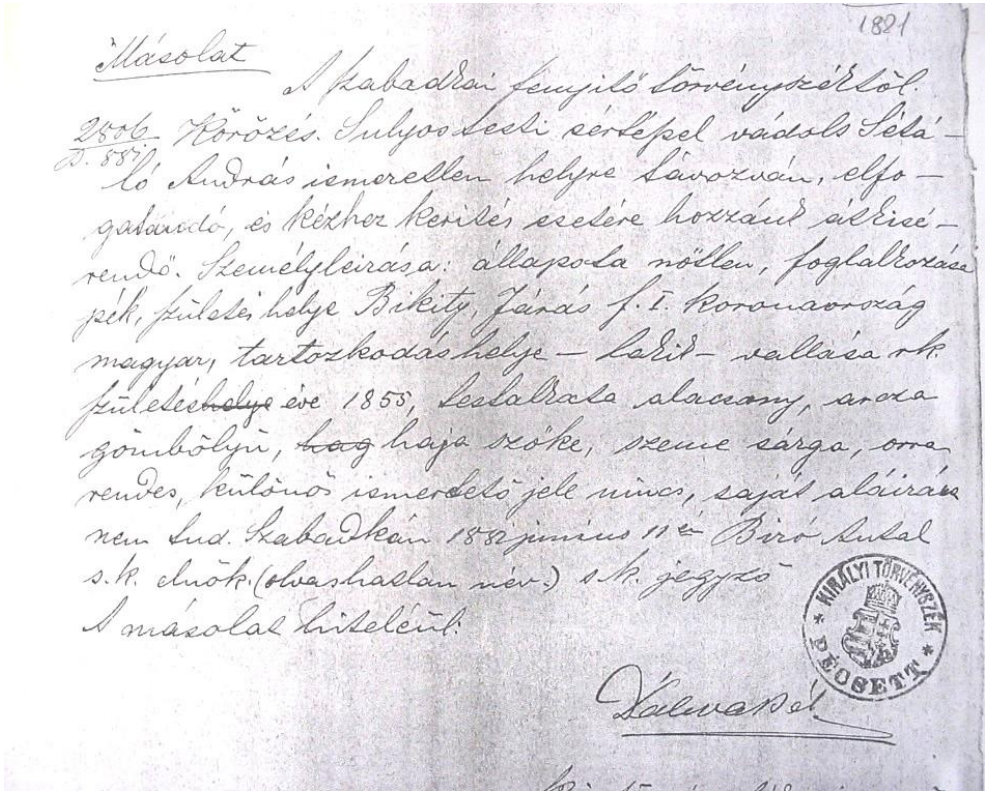 1821
Másolat
A szabadkai fenyitő törvényszéktől.
2806 Körözés. Sulyos testi sértéssel vádolt Sétá-
ló András ismeretlen helyre távozván, elfo-
gatandó, és kézhez kerités esetére hozzánk átkisé-
rendő. Személyleirása: állapota nőtlen, foglalkozása
pék, születés helye Bikity, Járás f. I. koronaország
magyar, tartozkodás helye - - vallása rk.
születéshelye éve 1855, testalkata alacsony, arcza
gömbölyü, hag haja szőke, szeme sárga, orra
rendes, különös ismertető jele nincs, saját aláirása
nem tud. Szabadkán 188 junius 11 én Biró Antal
s.k. elnök. (olvashatlan név.) s.k. jegyző
A másolat hiteléül:
KIRÁLYI TÖRVÉNYSZÉK
PÉCSETT